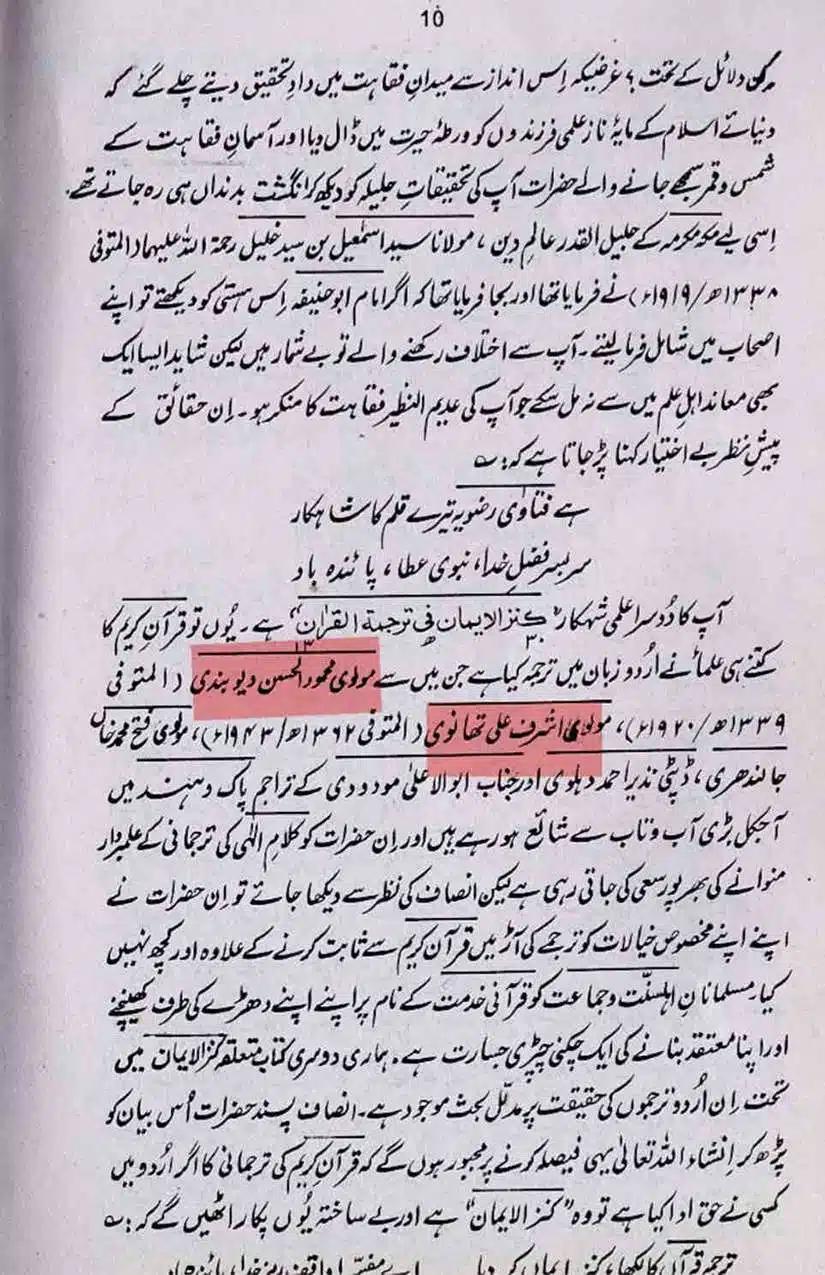 10
کن دلائل کے تحت ؟ غرضیکہ اِس انداز سے میدانِ فقاہت میں دادِ تحقیق دیتے چلے گئے کہ
دنیائے اسلام کے مایۂ ناز علمی فرزندوں کو ورطۂ حیرت میں ڈال دیا اور آسمانِ فقاہت کے
شمس و قمر سمجھے جانے والے حضرات آپ کی تحقیقاتِ جلیلہ کو دیکھ کر انگشت بدنداں ہی رہ جاتے تھے۔
اِسی لیے مکہ مکرمہ کے جلیل القدر عالمِ دین ، مولانا سید اسمٰعیل بن سید خلیل رحمۃ اللہ علیہما (المتوفی
۱۳۳۸ھ/۱۹۱۹ء) نے فرمایا تھا اور بجا فرمایا تھا کہ اگر امام ابو حنیفہ اِس ہستی کو دیکھتے تو اپنے
اصحاب میں شامل فرما لیتے۔ آپ سے اختلاف رکھنے والے تو بے شمار ہیں لیکن شاید ایسا ایک
بھی معاند اہلِ علم میں سے نہ مل سکے جو آپ کی عدیم النظیر فقاہت کا منکر ہو۔ اِن حقائق کے
پیشِ نظر بے اختیار کہنا پڑ جاتا ہے کہ:۔ ؎
ہے فتاویٰ رضویہ تیرے قلم کا شاہکار
سربسر فضلِ خدا، نبوی عطا، پائندہ باد
آپ کا دُوسرا علمی شہکار "کنز الایمان فی ترجمۃ القراٰن" ہے۔ یُوں تو قرآنِ کریم کا
۱۳۳۰ھ
کتنے ہی علمأ نے اُردو زبان میں ترجمہ کیا ہے جن میں سے مولوی محمود الحسن دیوبندی (المتوفی
۱۳۳۹ھ/۱۹۲۰ء)، مولوی اشرف علی تھانوی (المتوفی ۱۳۶۲ھ/۱۹۴۳ء)، مولوی فتح محمد خاں
جالندھری، ڈپٹی نذیر احمد دہلوی اور جناب ابوالاعلیٰ مودودی کے تراجم پاک و ہند میں
آجکل بڑی آب و تاب سے شائع ہو رہے ہیں اور اِن حضرات کو کلامِ الٰہی کی ترجمانی کے علمبردار
منوانے کی بھرپور سعی کی جاتی رہی ہے لیکن انصاف کی نظر سے دیکھا جائے تو اِن حضرات نے
اپنے اپنے مخصوص خیالات کو ترجمے کی آڑ میں قرآن کریم سے ثابت کرنے کے علاوہ اور کچھ نہیں
کیا۔ مسلمانانِ اہلسنّت و جماعت کو قرآنی خدمت کے نام پر اپنے اپنے دھڑے کی طرف کھینچنے
اور اپنا معتقد بنانے کی ایک چکنی چپڑی جسارت ہے۔ ہماری دوسری کتاب متعلقہ کنز الایمان میں
تحت اِن اُردو ترجموں کی حقیقت پر مدلّل بحث موجود ہے۔ انصاف پسند حضرات اُس بیان کو
پڑھ کر اِنشاء اللہ تعالیٰ یہی فیصلہ کرنے پر مجبور ہوں گے کہ قرآنِ کریم کی ترجمانی کا اگر اُردو میں
کسی نے حق ادا کیا ہے تو وہ "کنز الایمان" ہے اور بے ساختہ یُوں پکار اٹھیں گے کہ:۔ ؎
ترجمہ قرآن کا لکھا، کنز ایماں کر دیا